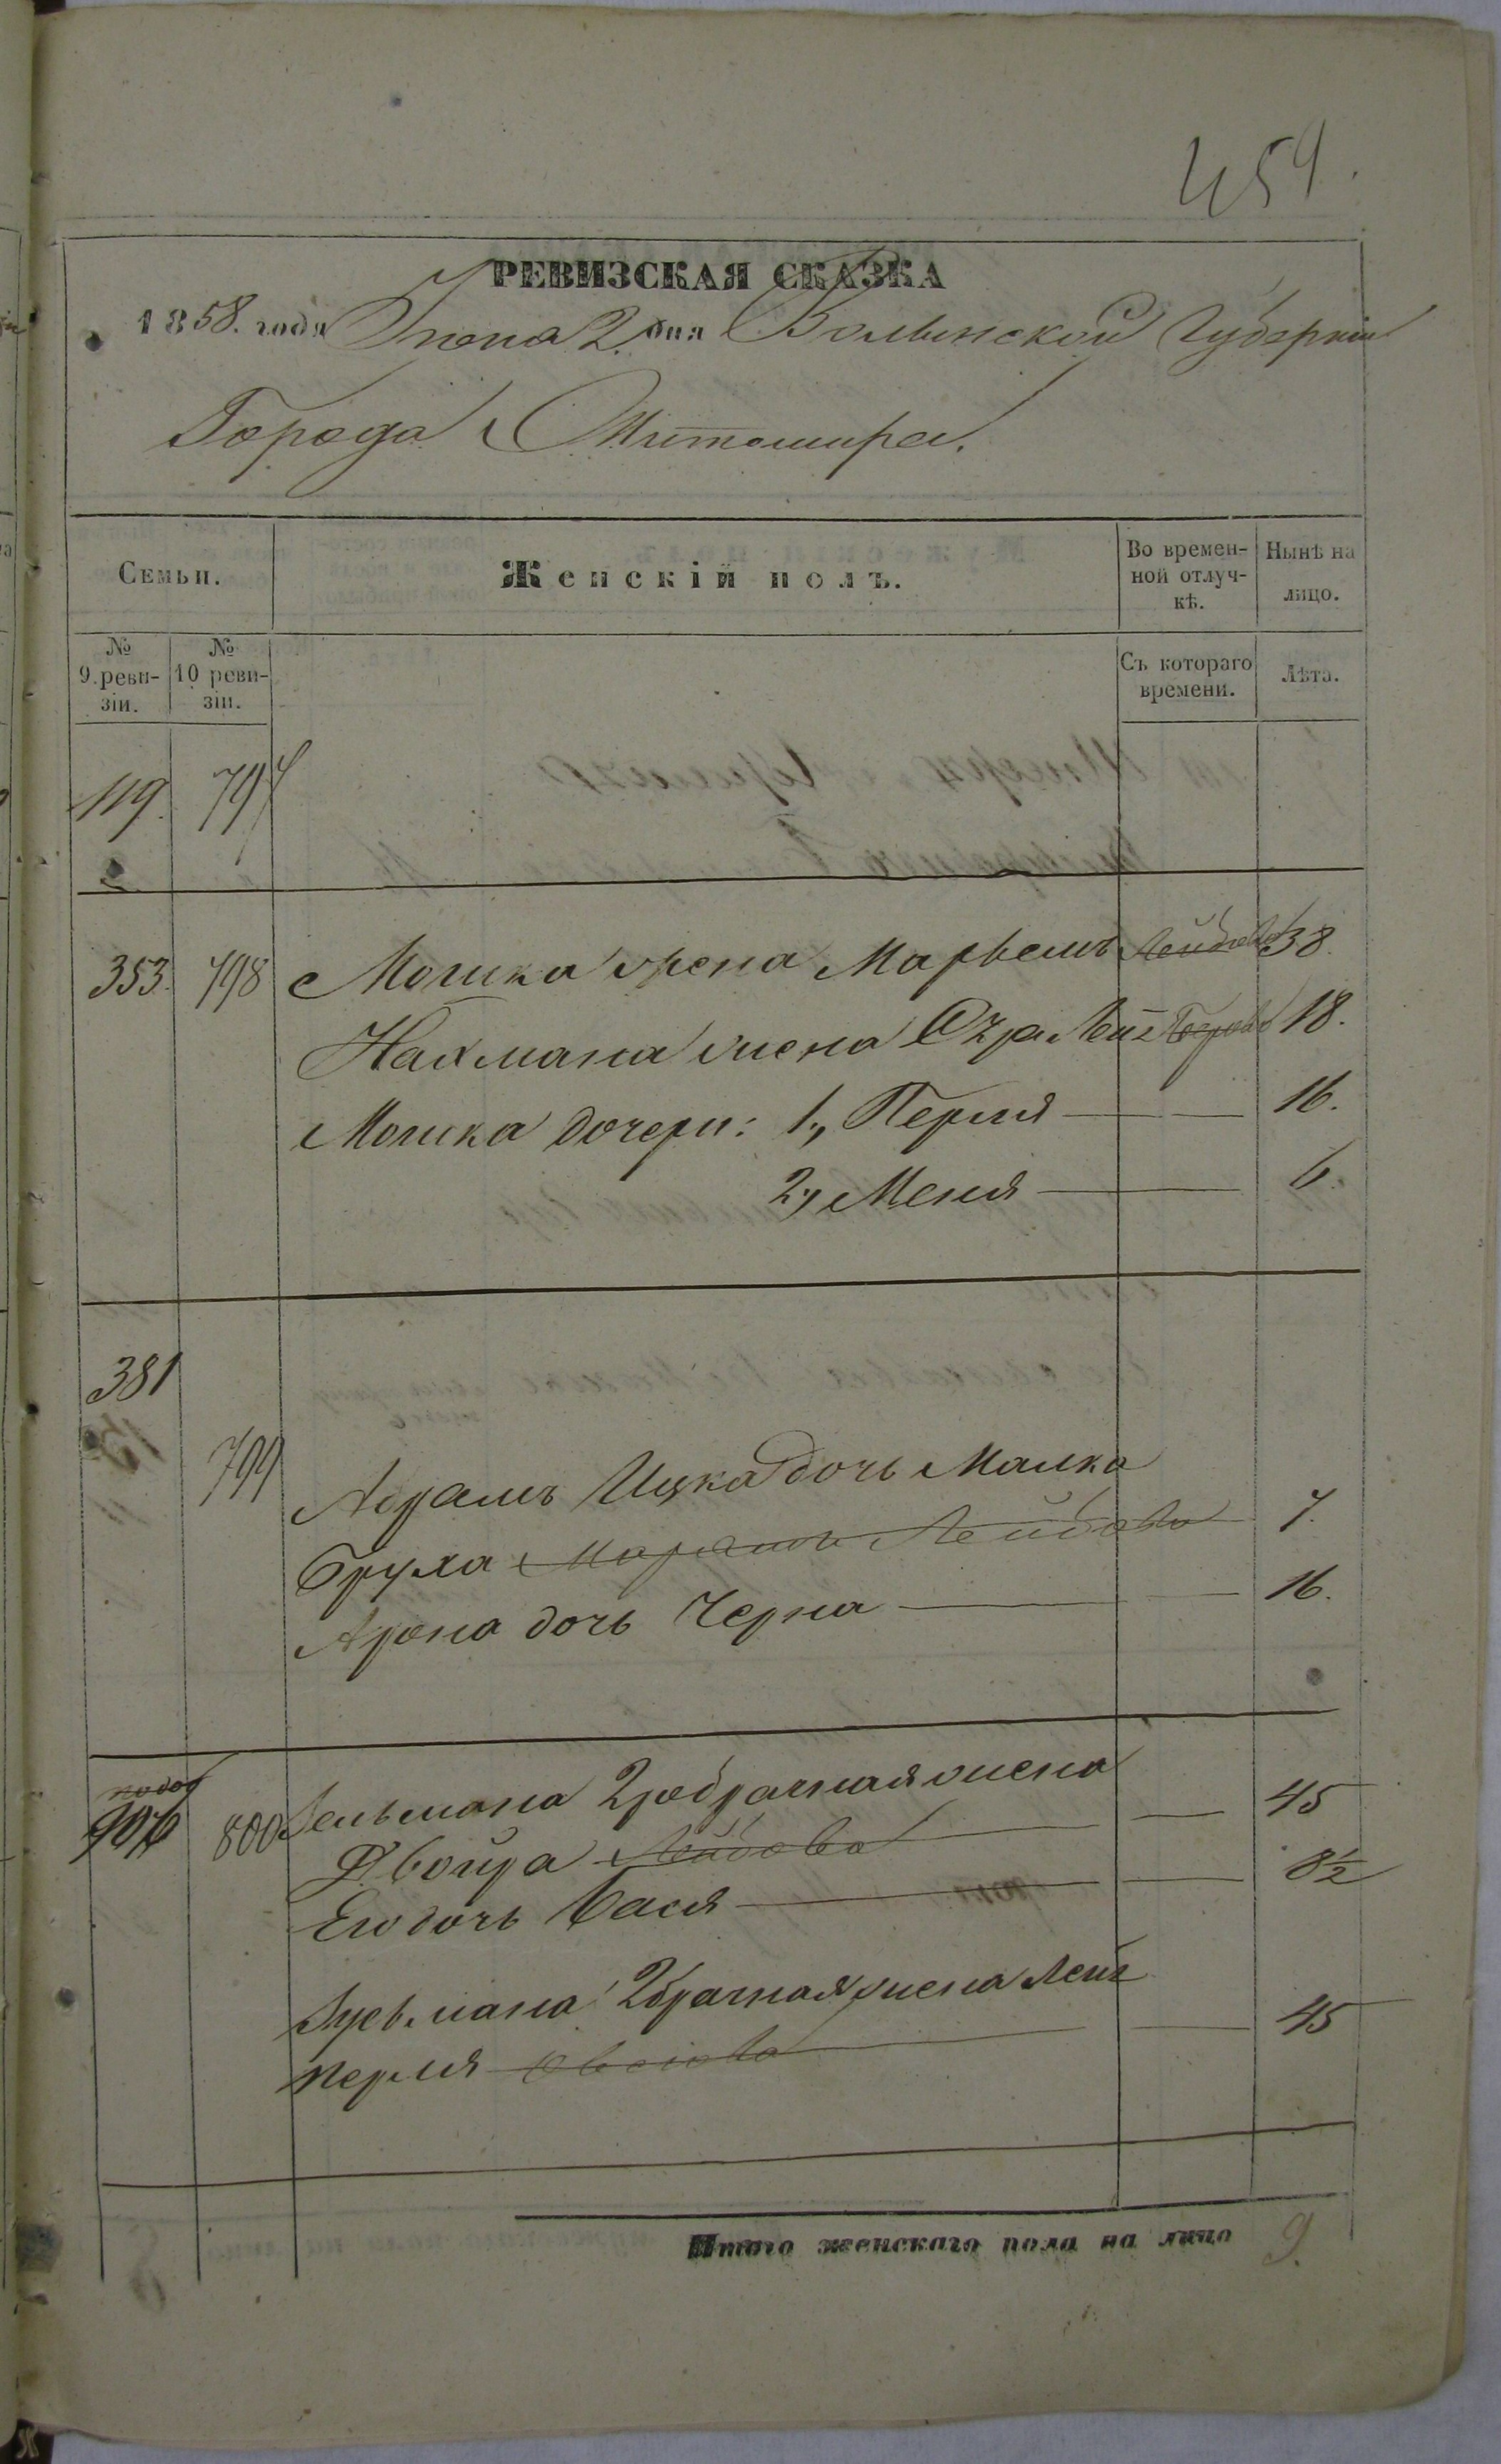 454.
РЕВИЗСКАЯ СКАЗКА
1858. года Іюня 2. дня Волынской Губерніи
Города Житомира.
Семьи.
Женскій полъ.
Во времен-
ной отлуч-
кѣ.
Нынѣ на
лицо.
№
9. реви-
зіи.
№
10 реви-
зіи.
Съ котораго
времени.
Лѣта.
119. 797
353. 798 Мошка жена Марьемъ Лейбова 38.
Нахмана жена Сура Лея 18.
Мошка дочери: 1., Перля 16.
2., Меня 6.
381
799 Абрамъ Ицка дочь Малка
Бруха Марьямъ Лейбова 7.
Арона дочь Черна 16.
800 Зельмана 2хбрачная жена
Двойра Лейбова 45
Его дочь Бася 8½
2брачная жена Лея
Перля 45
Итого женскаго пола на лицо 9.